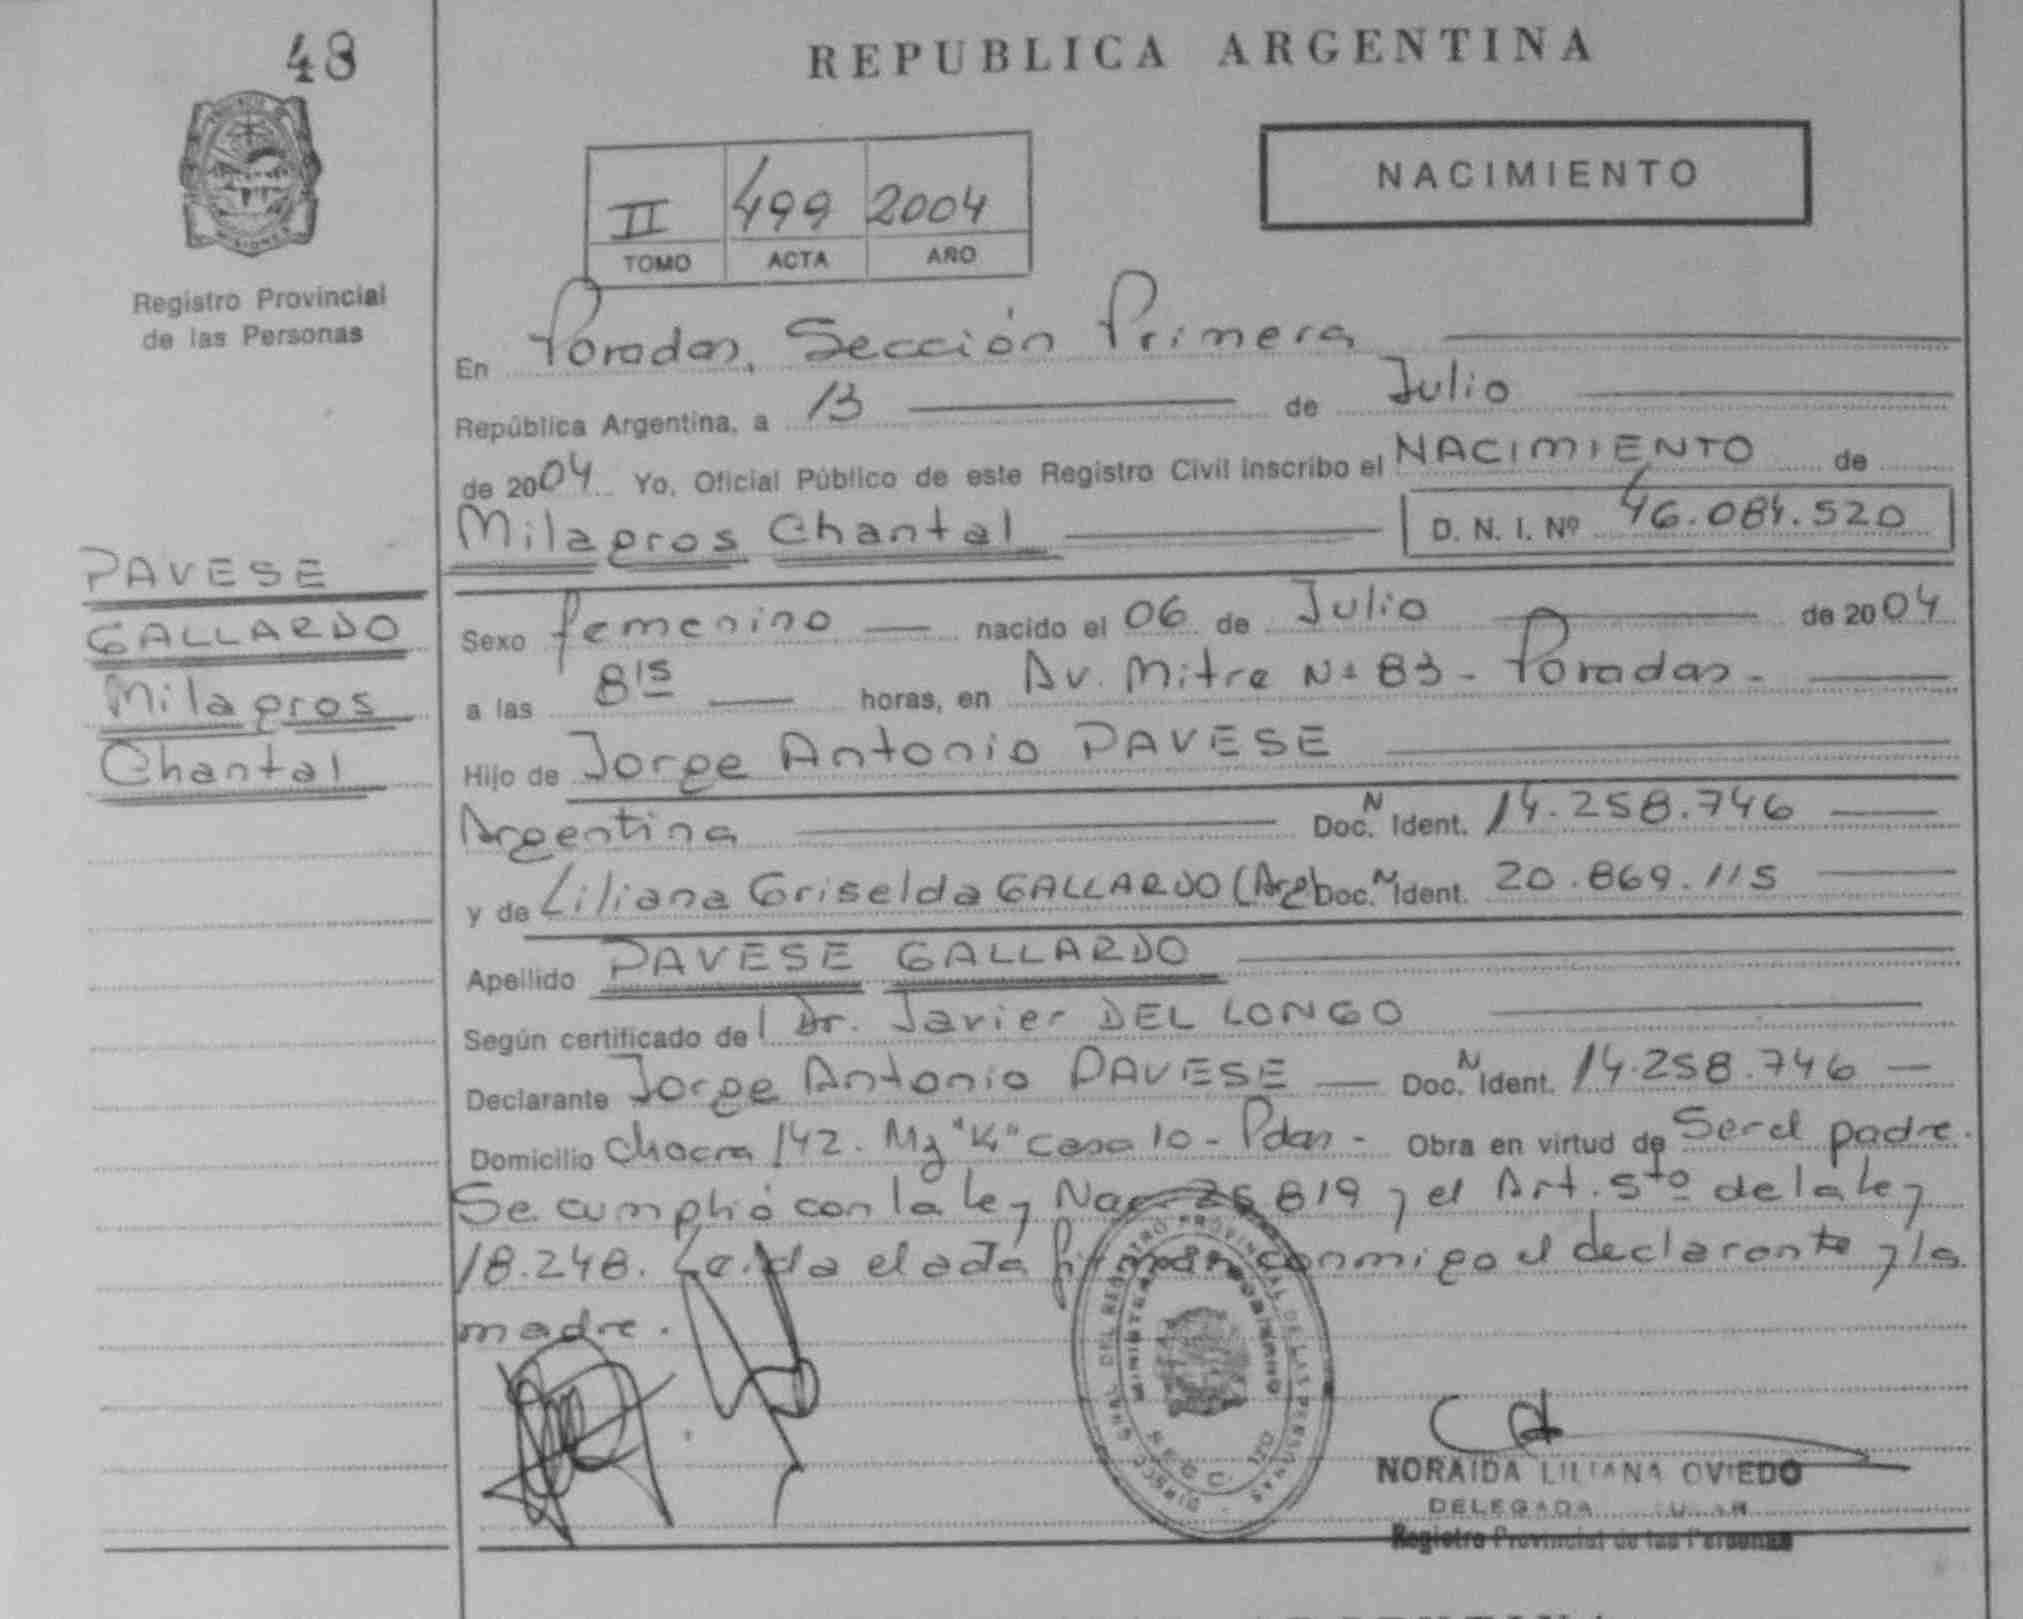 48
REPUBLICA ARGENTINA
NACIMIENTO
II 499 2004
TOMO ACTA AÑO
Registro Provincial
de las Personas
En Posadas, Sección Primera
República Argentina, a 13 de Julio
de 2004 Yo, Oficial Público de este Registro Civil inscribo el NACIMIENTO de
Milagros Chantal D. N. I. Nº 46.084.520
PAVESE
GALLARDO
Milagros
Chantal
Sexo femenino nacido el 06 de Julio de 2004
a las 8 15 horas, en Av. Mitre Nº 83 - Posadas -
Hijo de Jorge Antonio PAVESE
Argentina Doc. N Ident. 14.258.746
y de Liliana Griselda GALLARDO (Arg) Doc. N Ident. 20.869.115
Apellido PAVESE GALLARDO
Según certificado del Dr. Javier DEL LONGO
Declarante Jorge Antonio PAVESE Doc. N Ident. 14.258.746
Domicilio Chacra 142. Mz "K" casa 10 - Pdas - Obra en virtud de Ser el padre.
Se cumplió con la ley Nac 25.819 y el Art. 5to de la ley
18.248. Leída el acta firman conmigo el declarante y la
madre.
DIRECC. GRAL. DEL REGISTRO PROVINCIAL DE LAS PERSONAS
MINISTERIO GOBIERNO
NORAIDA LILIANA OVIEDO
DELEGADA
Registro Provincial de las Personas